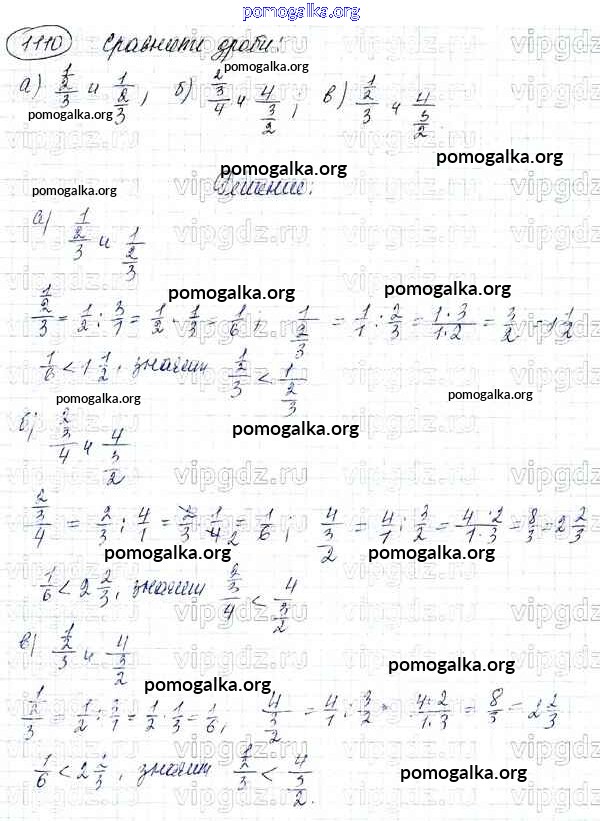 pomogalka.org
1110 Сравните дроби:
а) (1/2)/3 и 1/(2/3), б) (2/3)/4 и 4/(3/2), в) (1/2)/3 и 4/(3/2)
pomogalka.org
pomogalka.org
pomogalka.org
Решение:
а) (1/2)/3 и 1/(2/3)
pomogalka.org pomogalka.org
(1/2)/3 = 1/2 : 3/1 = 1/2 · 1/3 = 1/6; 1/(2/3) = 1/1 : 2/3 = (1·3)/(1·2) = 3/2 = 1 1/2
1/6 < 1 1/2, значит (1/2)/3 < 1/(2/3)
pomogalka.org pomogalka.org
pomogalka.org
б) (2/3)/4 и 4/(3/2)
vipgdz.ru
(2/3)/4 = 2/3 : 4/1 = 2/3 · 1/4 2 = 1/6; 4/(3/2) = 4/1 : 3/2 = (4·2)/(1·3) = 8/3 = 2 2/3
pomogalka.org pomogalka.org
1/6 < 2 2/3, значит (2/3)/4 < 4/(3/2)
в) (1/2)/3 и 4/(3/2)
pomogalka.org
pomogalka.org
(1/2)/3 = 1/2 : 3/1 = 1/2 · 1/3 = 1/6, 4/(3/2) = 4/1 : 3/2 = (4·2)/(1·3) = 8/3 = 2 2/3
1/6 < 2 2/3, значит (1/2)/3 < 4/(3/2).
pomogalka.org